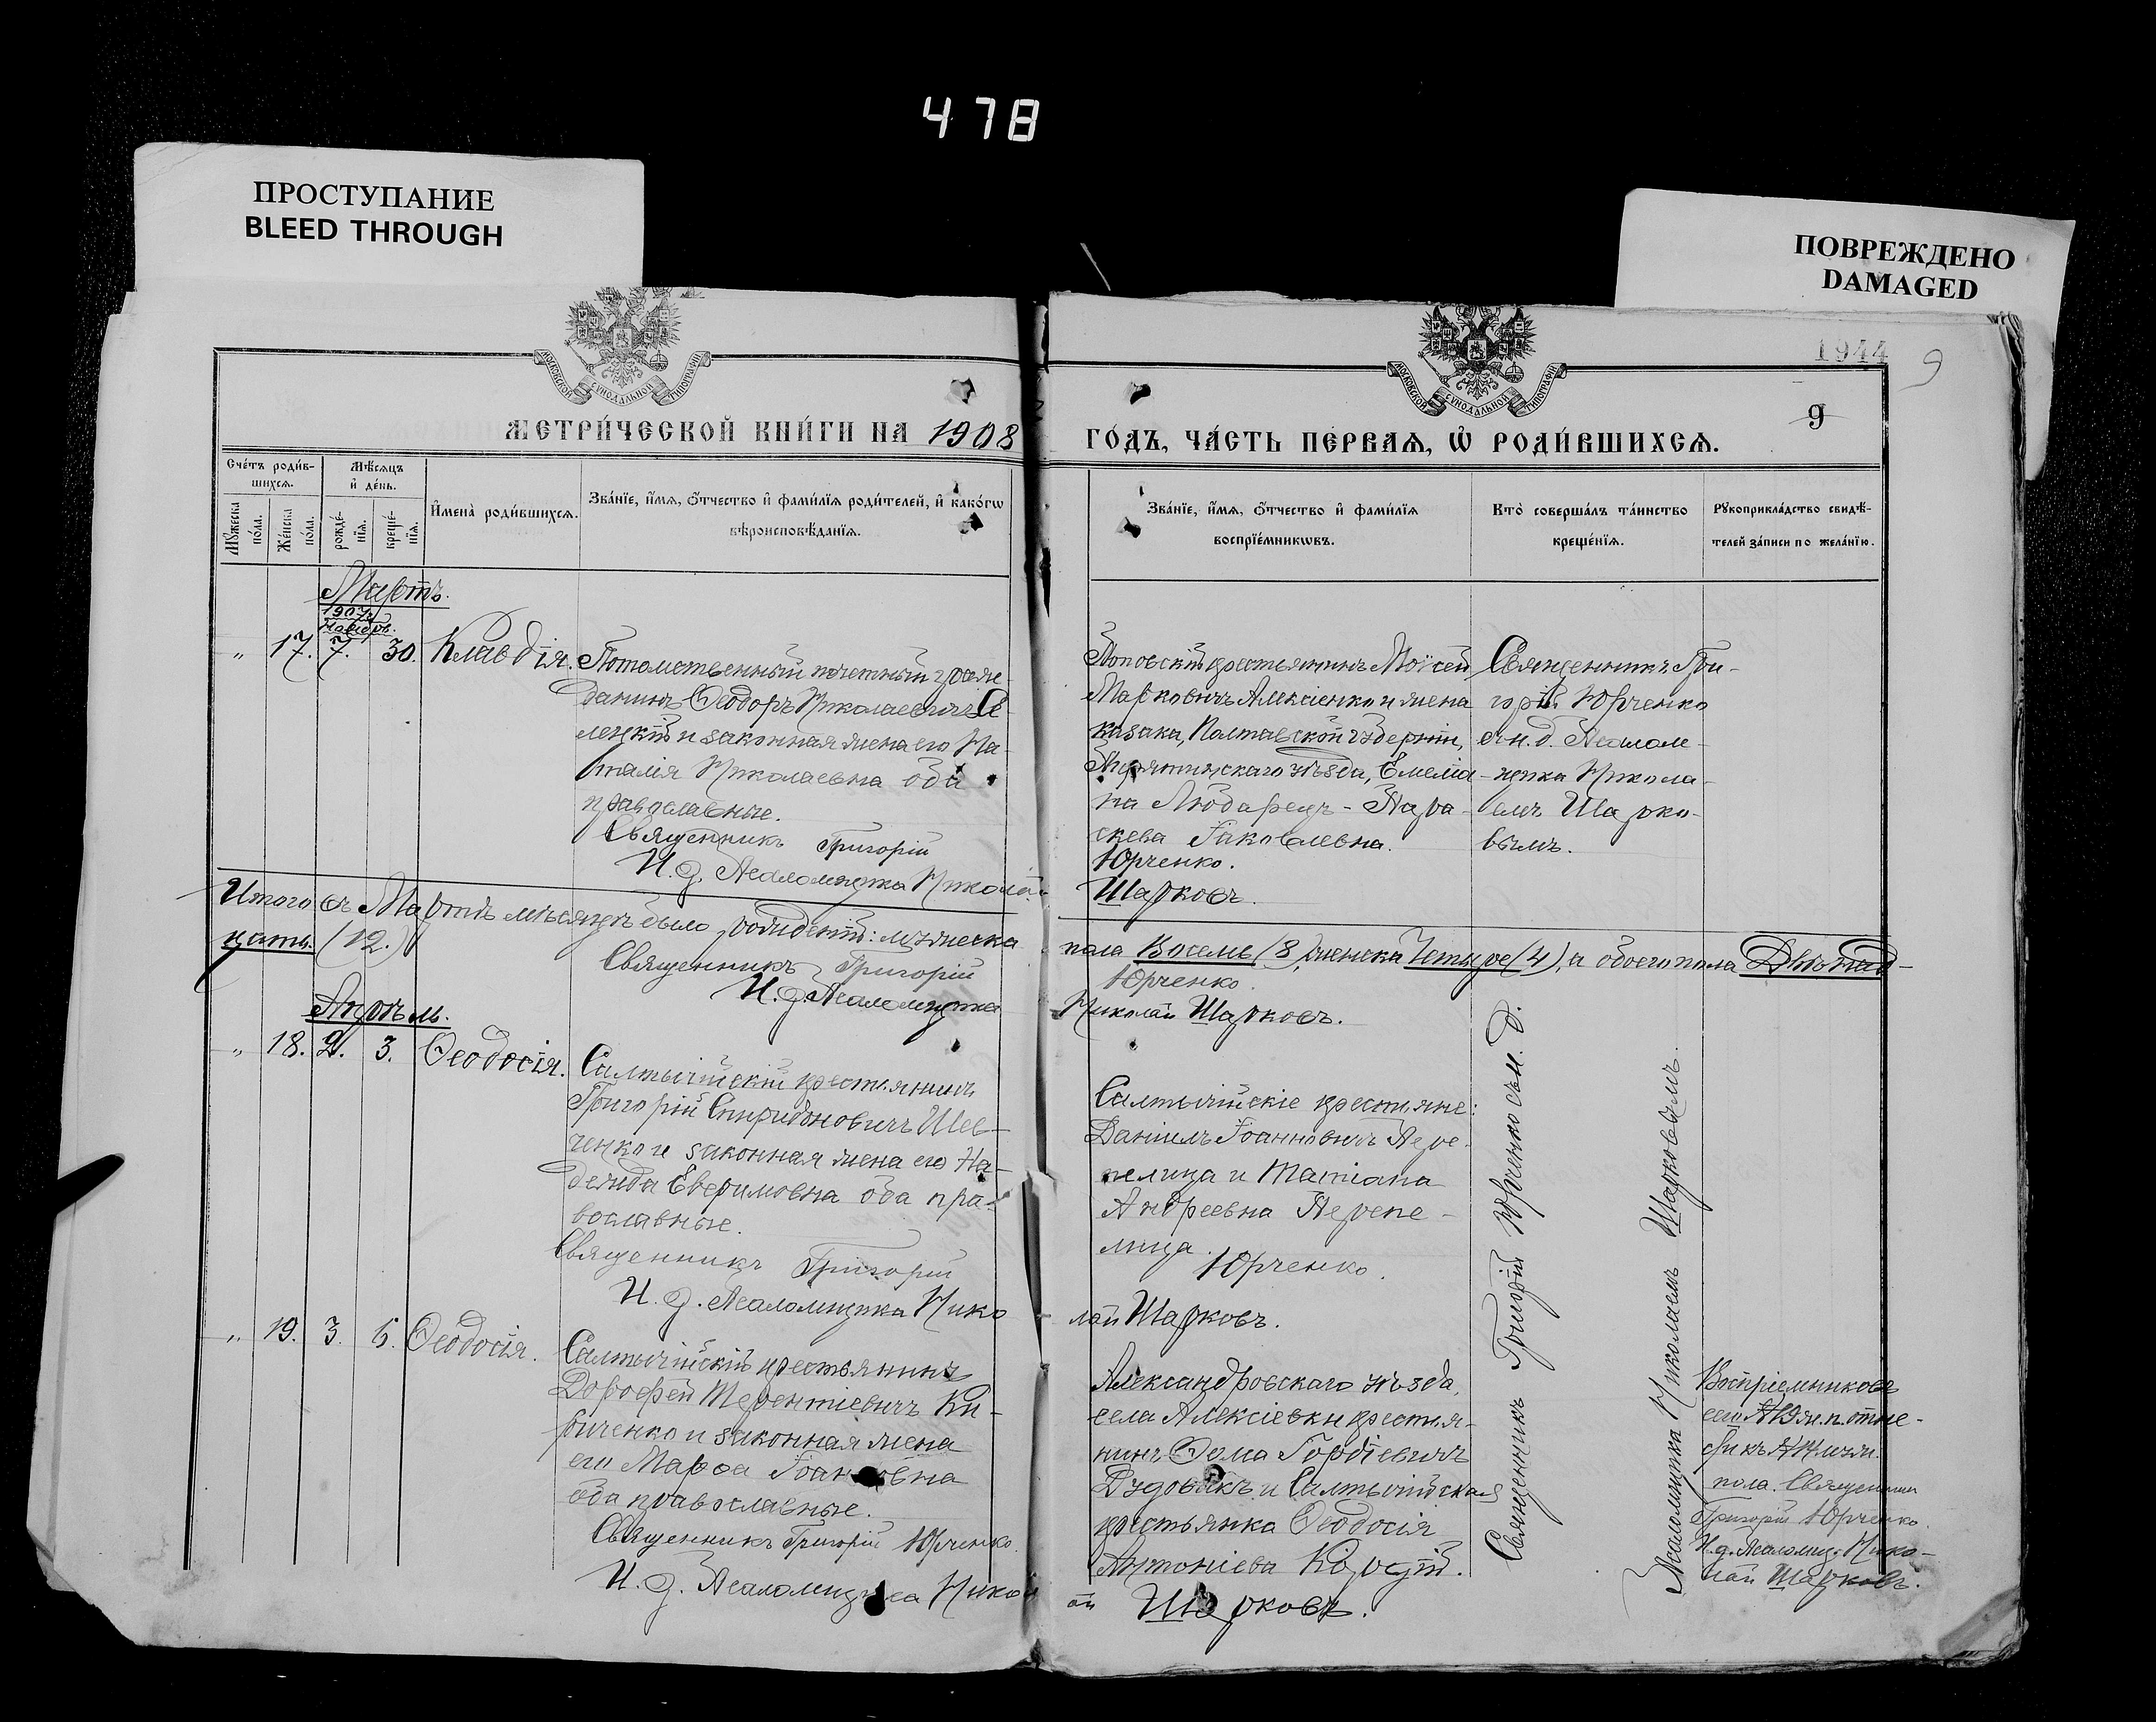 478
ПРОСТУПАНИЕ
BLEED THROUGH
ПОВРЕЖДЕНО
DAMAGED
МОСКОВСКОЙ СѴНОДАЛЬНОЙ ТИПОГРАФІИ
МОСКОВСКОЙ СѴНОДАЛЬНОЙ ТИПОГРАФІИ
1944
9
9
МЕТРИ́ЧЕСКОЙ КНИ́ГИ НА 1908
ГО́ДЪ, ЧА́СТЬ ПЕ́РВАѦ, Ѽ РОДИ́ВШИХСѦ.
Сче́тъ роди́в-
шихсѧ.
Мѣ́сѧцъ
и҆ де́нь.
Мꙋ́жеска
по́ла.
Же́нска
по́ла.
рожде́-
нїѧ.
креще́-
нїѧ.
И҆мена̀ роди́вшихсѧ.
Зва́нїе, и҆́мѧ, ѻ҆́тчество и҆ фами́лїѧ роди́телей, и҆ како́гѡ
вѣроисповѣ́данїѧ.
Зва́нїе, и҆́мѧ, ѻ҆́тчество и҆ фами́лїѧ
воспрїе́мникѡвъ.
Кто̀ соверша́лъ та́инство
креще́нїѧ.
Рꙋкоприкла́дство свидѣ́-
телей за́писи по жела́нїю.
Мартъ.
1907 г.
Ноябрь.
" 17. 7. 30. Клавдія.
Потомственный почетный граж-
данинъ Ѳеодоръ Николаевичъ
и законная жена его На-
талія Николаевна оба
православные.
Священникъ Григорій
И. д. Псаломщика Николай
Поповскій крестьянинъ Моісей
Марковичъ Алексіенко и жена
казака, Полтавской губерніи,
Пирятинскаго уѣзда, Емеліа-
на Людарецъ - Пара-
скева Іаковлевна.
Юрченко.
Шарковъ.
Священникъ Гри-
горій Юрченко
съ и. д. Псалом-
щика Никола-
емъ Шарко-
вымъ.
Итого въ Мартѣ мѣсяцѣ было рожденій: мужеска
пола Восемь (8), женска Четыре (4), а обоего пола Двѣнад-
цать. (12.)
Священникъ Григорій
И. д. Псаломщика
Юрченко.
Николай Шарковъ.
Апрѣль.
" 18. 2. 3. Ѳеодосія.
Салтычійскій крестьянинъ
Григорій Спиридоновичъ Шев-
ченко и законная жена его На-
дежда Евфимовна оба пра-
вославные.
Священникъ Григорій
И. д. Псаломщика Нико
Салтычійскіе крестьяне:
Даніилъ Іоанновичъ Пере-
пелица и Татіана
Андреевна Перепе-
лица.
Юрченко.
лай Шарковъ.
Священникъ Григорій Юрченко съ и. д.
Псаломщика Николаемъ Шарковымъ.
" 19. 3. 6. Ѳеодосія.
Салтычійскій крестьянинъ
Дороѳей Терентіевичъ Ки-
риченко и законная жена
его Марѳа Іоанновна
оба православные.
Священникъ Григорій Юрченко.
И. д. Псаломщика Никол
Александровскаго уѣзда,
села Алексіевки крестья-
нинъ Ѳома Гордіевичъ
Дудовикъ и Салтычійская
крестьянка Ѳеодосія
Антоніева Коростій.
ай Шарковъ.
Священникъ
Григорій Юрченко.
И. д. Псаломщ. Нико-
лай Шарковъ.